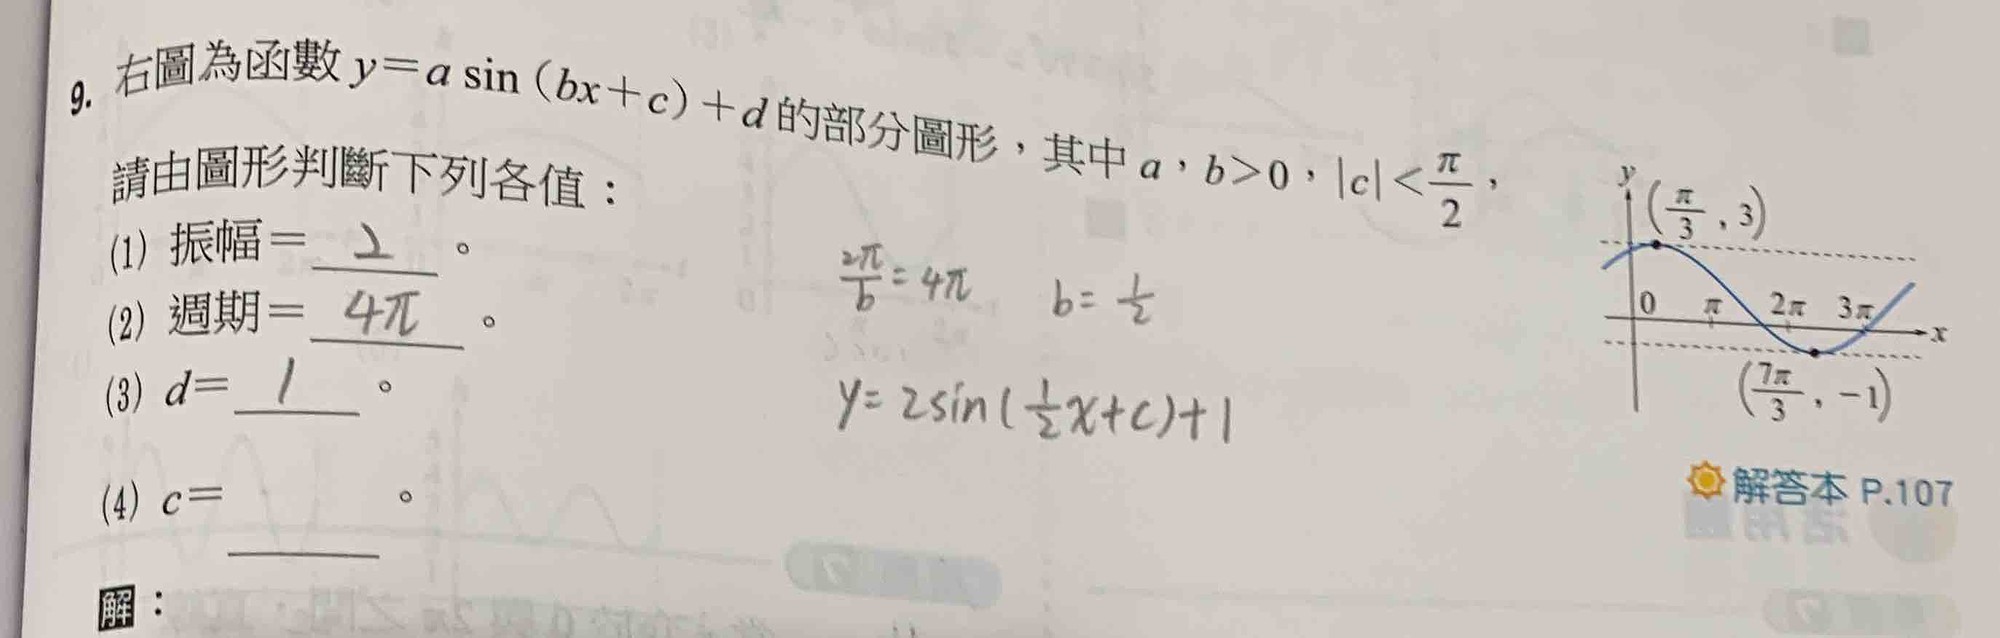 9. 右圖為函數 y=a sin (bx+c)+d 的部分圖形，其中 a，b>0，|c|<π/2，
請由圖形判斷下列各值：
(1) 振幅= 2 。
(2) 週期= 4π 。
(3) d= 1 。
(4) c= 。
解：
2π/b = 4π b = 1/2
y= 2sin(1/2x+c)+1
y
(π/3, 3)
0 π 2π 3π x
(7π/3, -1)
解答本 P.107